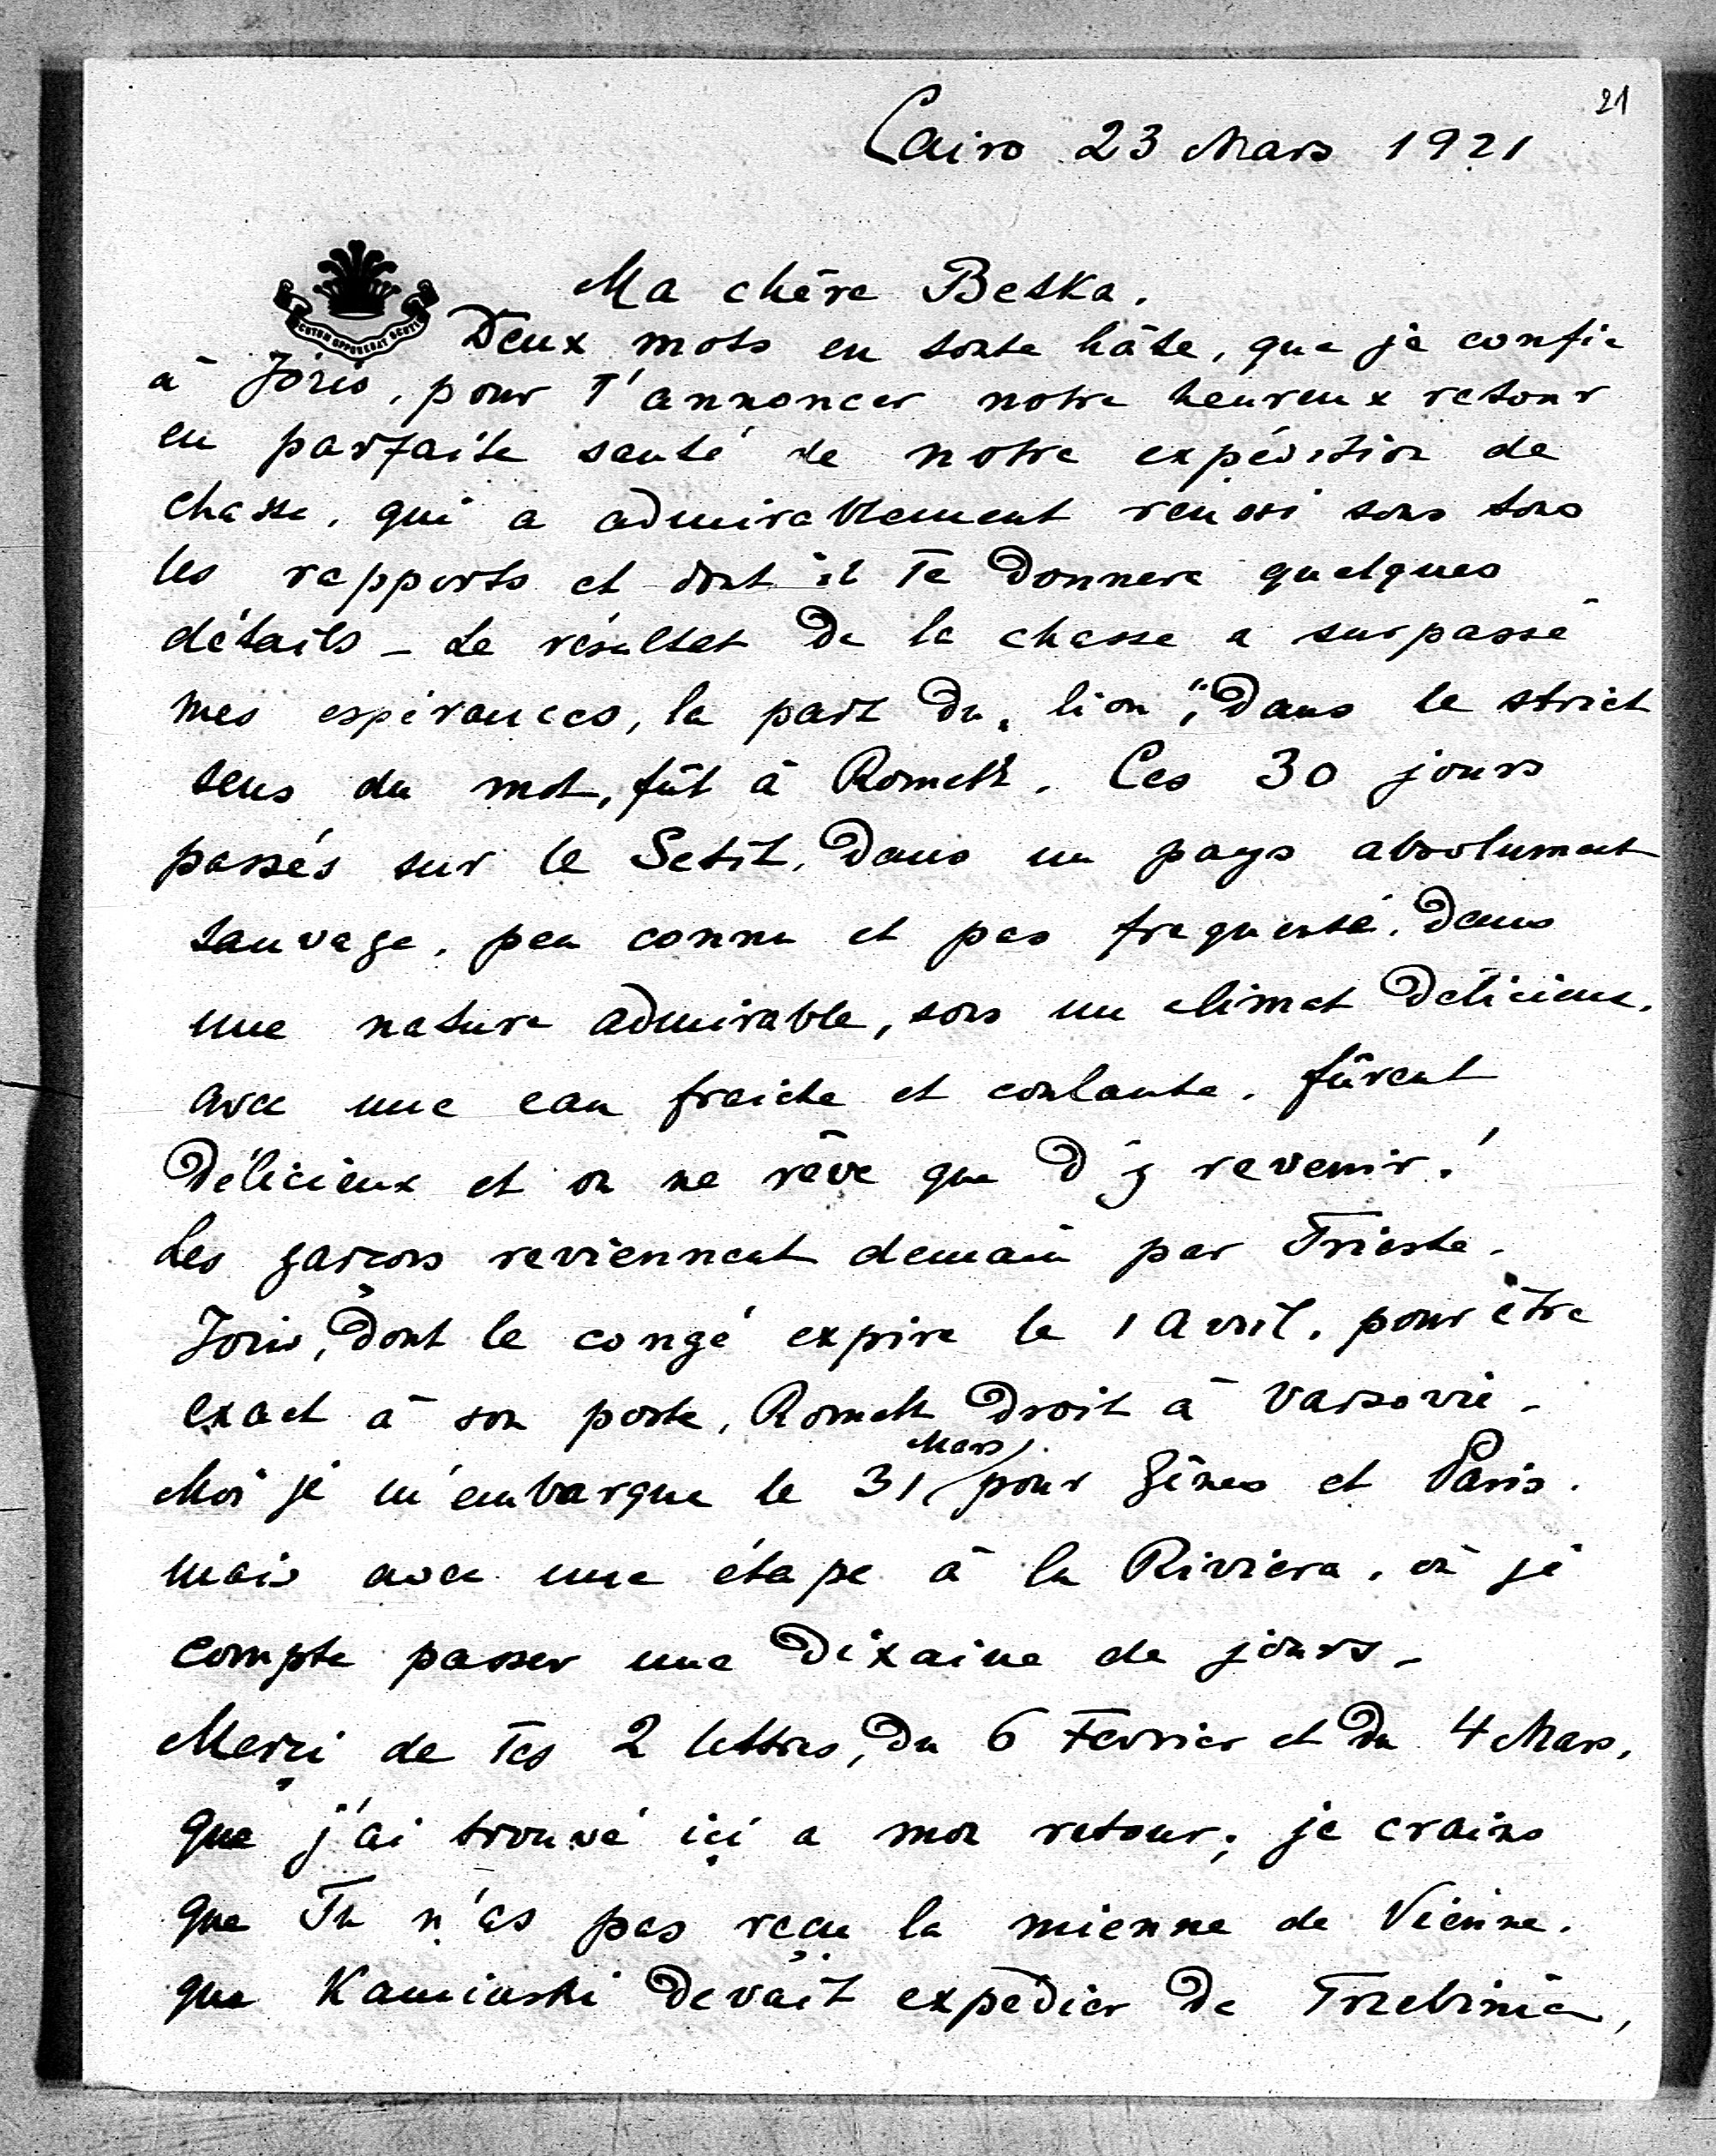 21
Cairo 23 Mars 1921
Ma chère Betka.
Deux mots en toute hâte, que je confie
à Joris, pour T'annoncer notre heureux retour
en parfaite santé de notre expédition de
chasse, qui a admirablement réussi sous tous
les rapports et dont il Te donnera quelques
détails – Le résultat de la chasse a surpassé
mes espérances, la part du „lion", dans le strict
sens du mot, fût à Romek. Ces 30 jours
passés sur le Setit, dans un pays absolument
sauvage, peu connu et pas frequenté, dans
une nature admirable, sous un climat délicieux,
avec une eau fraiche et coulante, fûrent
délicieux et on ne rêve que d'y revenir!
Les garçons reviennent demain par Trieste.
Joris, dont le congé expire le 1 Avril, pour être
exact à son poste, Romek droit à Varsovie –
Moi je m'embarque le 31 Mars pour Gênes et Paris.
mais avec une étape à la Riviera, où je
compte passer une dixaine de jours –
Merci de Tes 2 lettres, du 6 Fevrier et du 4 Mars,
que j'ai trouvé ici a mon retour; je crains
que Tu n'as pas reçu la mienne de Vienne.
que Kaminski devait expédier de Trzebinia,